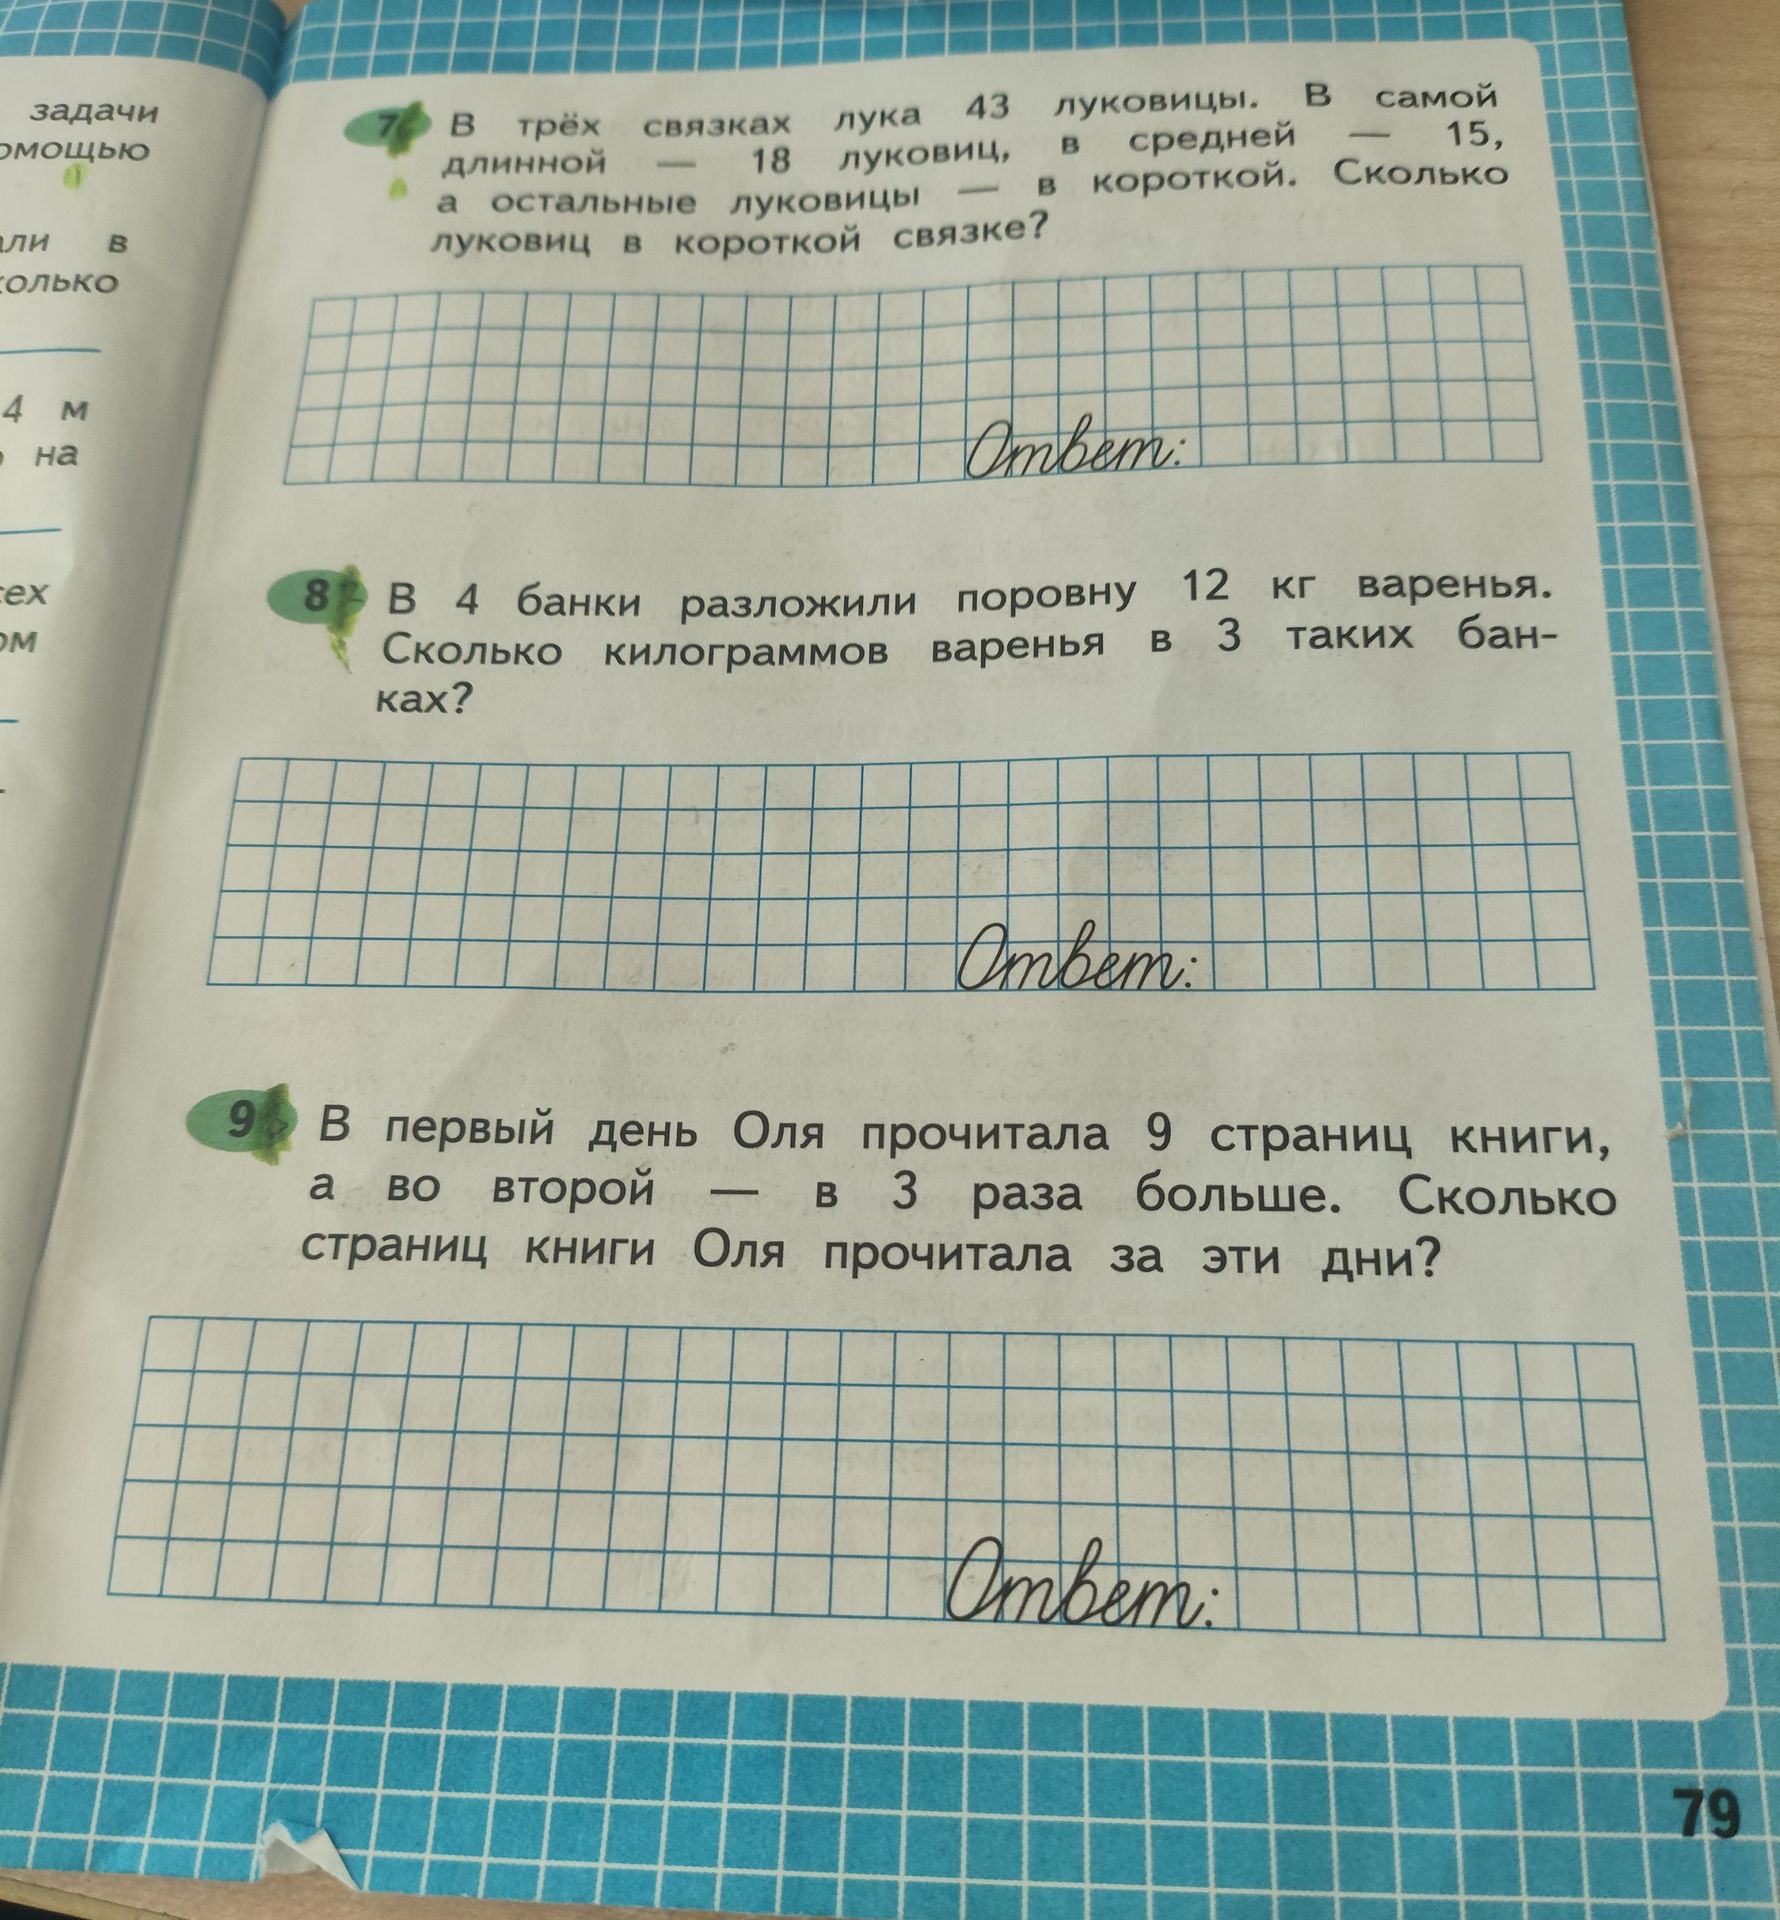 задачи
омощью
али в
колько
4 м
на
сех
ом
7 В трёх связках лука 43 луковицы. В самой
длинной — 18 луковиц, в средней — 15,
а остальные луковицы — в короткой. Сколько
луковиц в короткой связке?
Ответ:
8 В 4 банки разложили поровну 12 кг варенья.
Сколько килограммов варенья в 3 таких бан-
ках?
Ответ:
9 В первый день Оля прочитала 9 страниц книги,
а во второй — в 3 раза больше. Сколько
страниц книги Оля прочитала за эти дни?
Ответ:
79